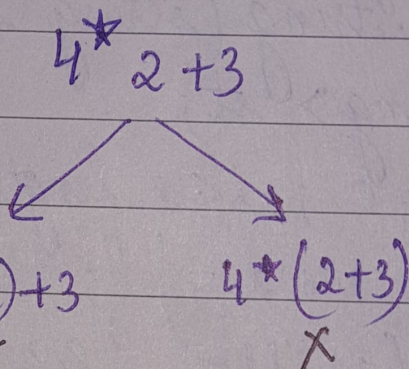 4* 2 +3
)+3 4*(2+3)
x